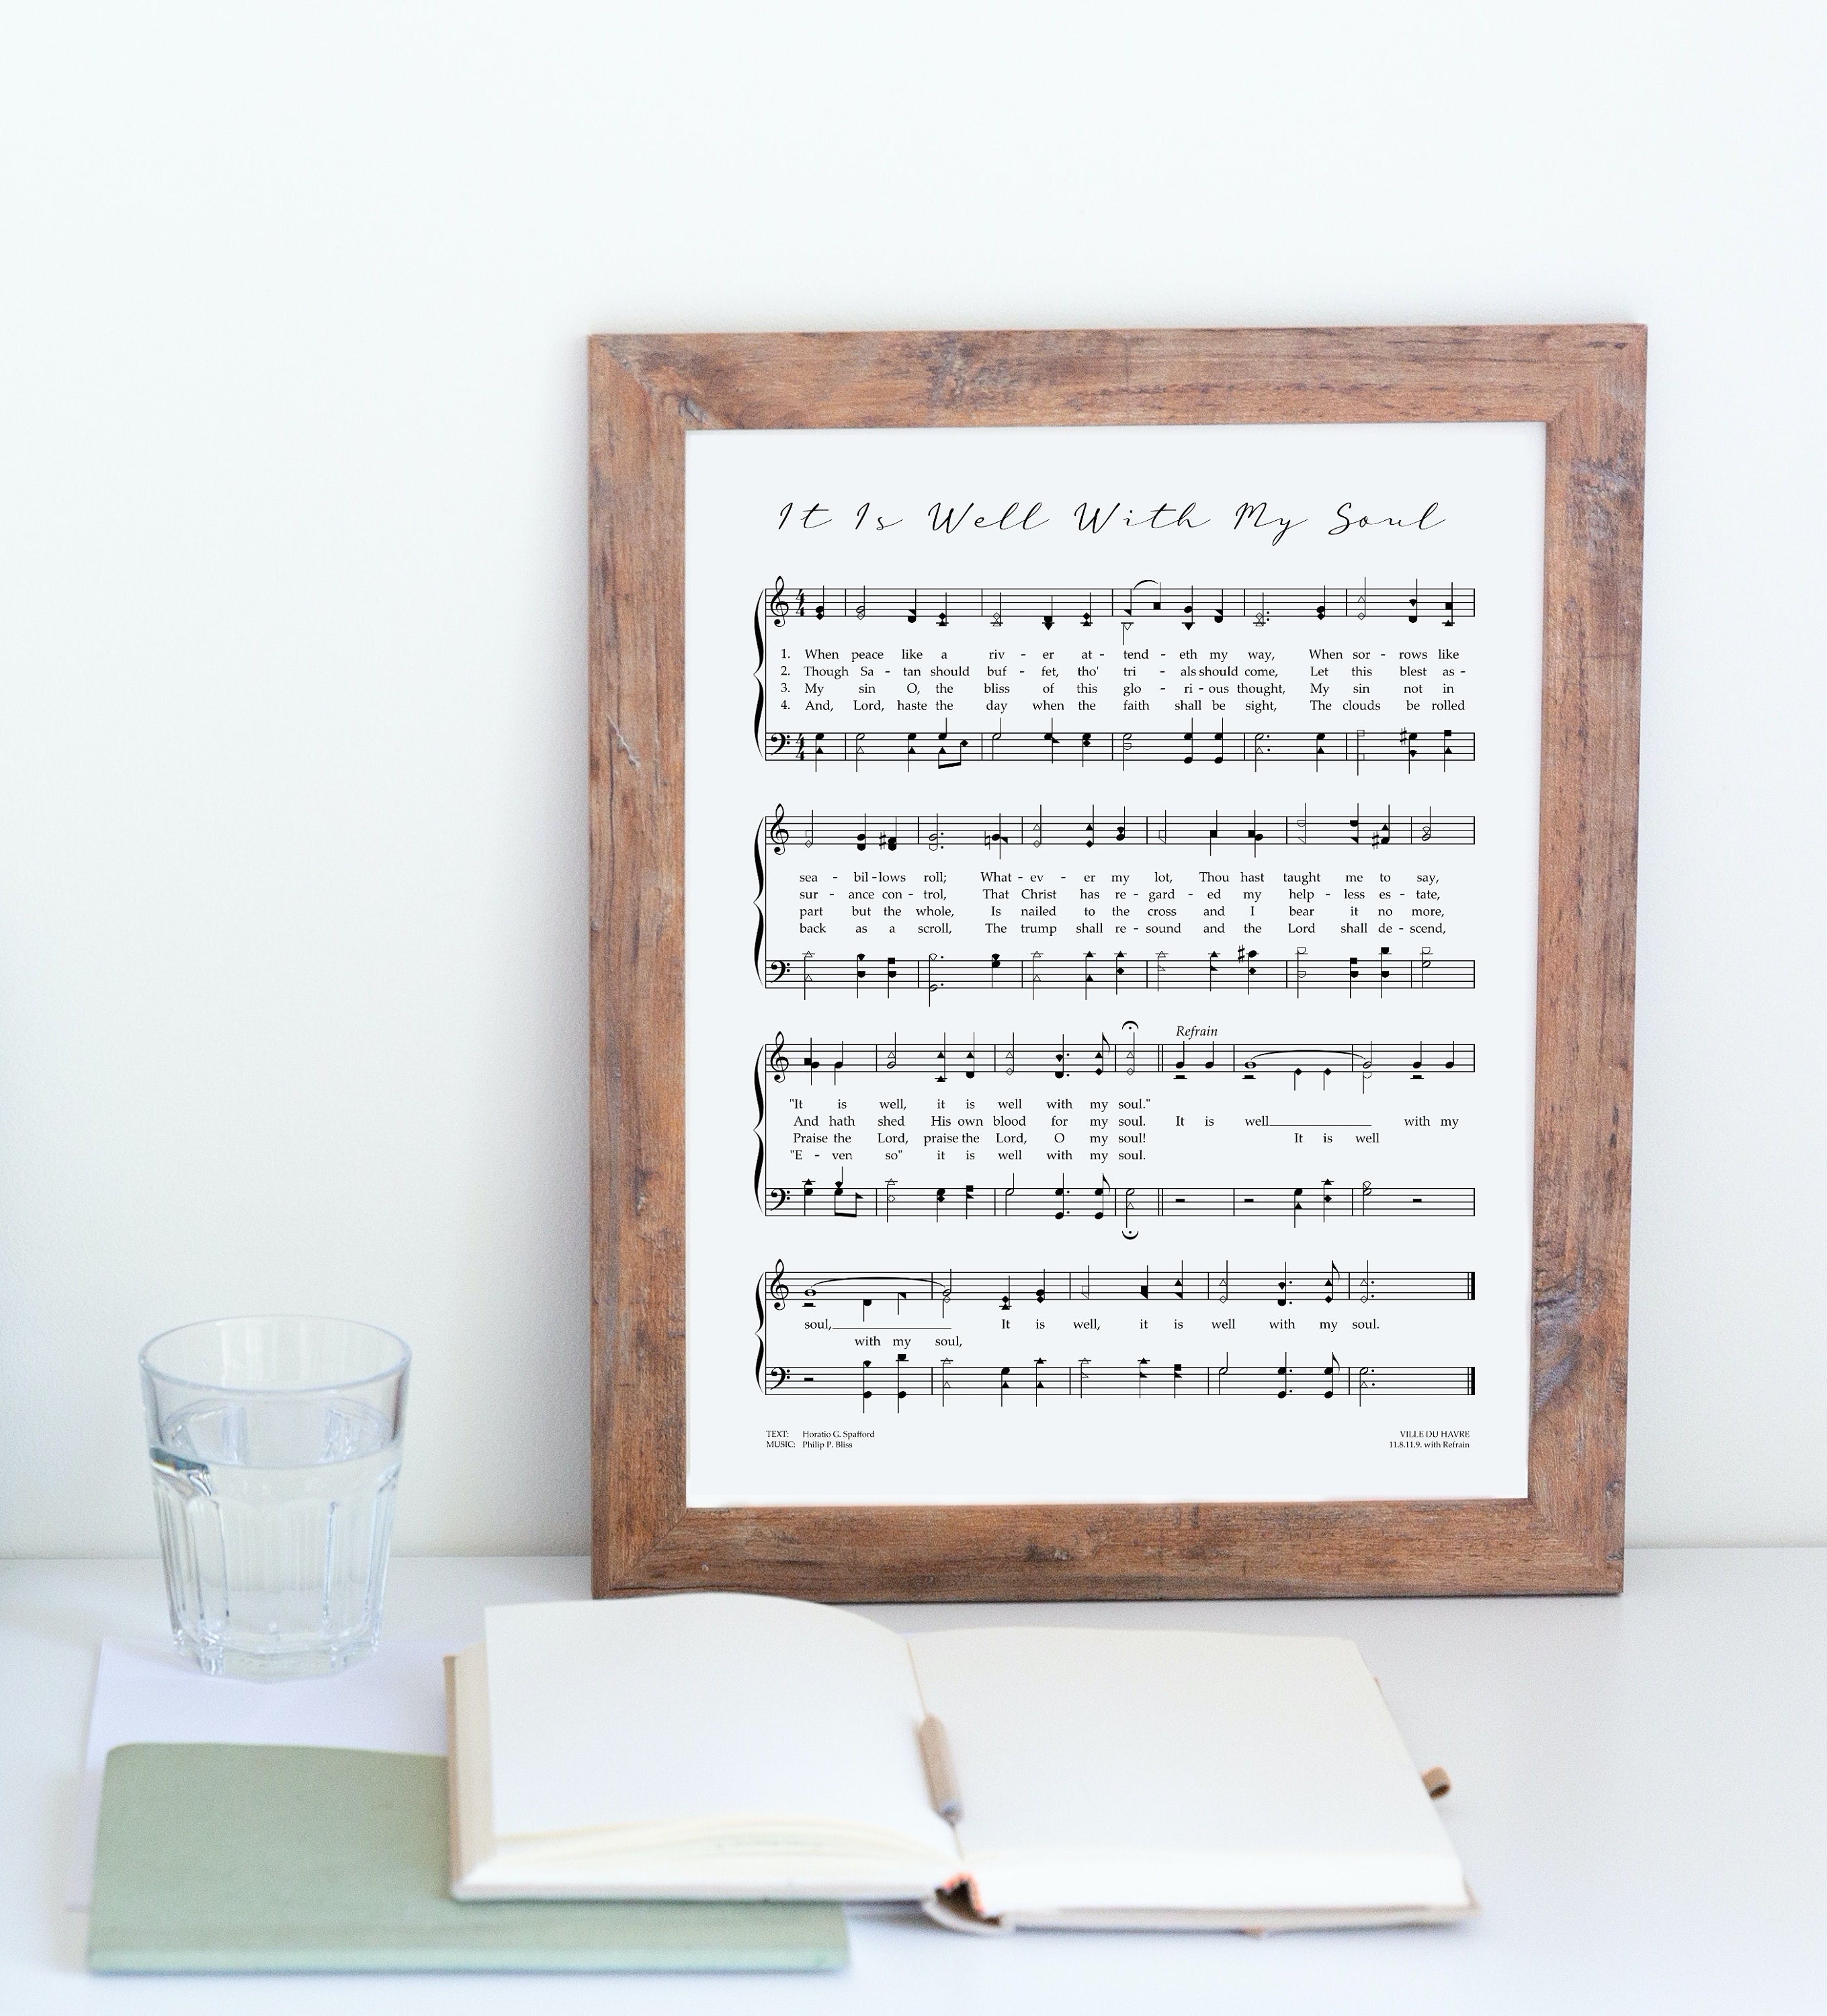 It Is Well With My Soul
1. When peace like a riv - er at - tend - eth my way, When sor - rows like
2. Though Sa - tan should buf - fet, tho' tri - als should come, Let this blest as -
3. My sin O, the bliss of this glo - ri - ous thought, My sin not in
4. And, Lord, haste the day when the faith shall be sight, The clouds be rolled
sea - bil - lows roll; What - ev - er my lot, Thou hast taught me to say,
sur - ance con - trol, That Christ has re - gard - ed my help - less es - tate,
part but the whole, Is nailed to the cross and I bear it no more,
back as a scroll, The trump shall re - sound and the Lord shall de - scend,
Refrain
"It is well, it is well with my soul."
And hath shed His own blood for my soul. It is well___ with my
Praise the Lord, praise the Lord, O my soul! It is well
"E - ven so" it is well with my soul.
soul,___ It is well, it is well with my soul.
with my soul,
TEXT: Horatio G. Spafford
MUSIC: Philip P. Bliss
VILLE DU HAVRE
11.8.11.9. with Refrain